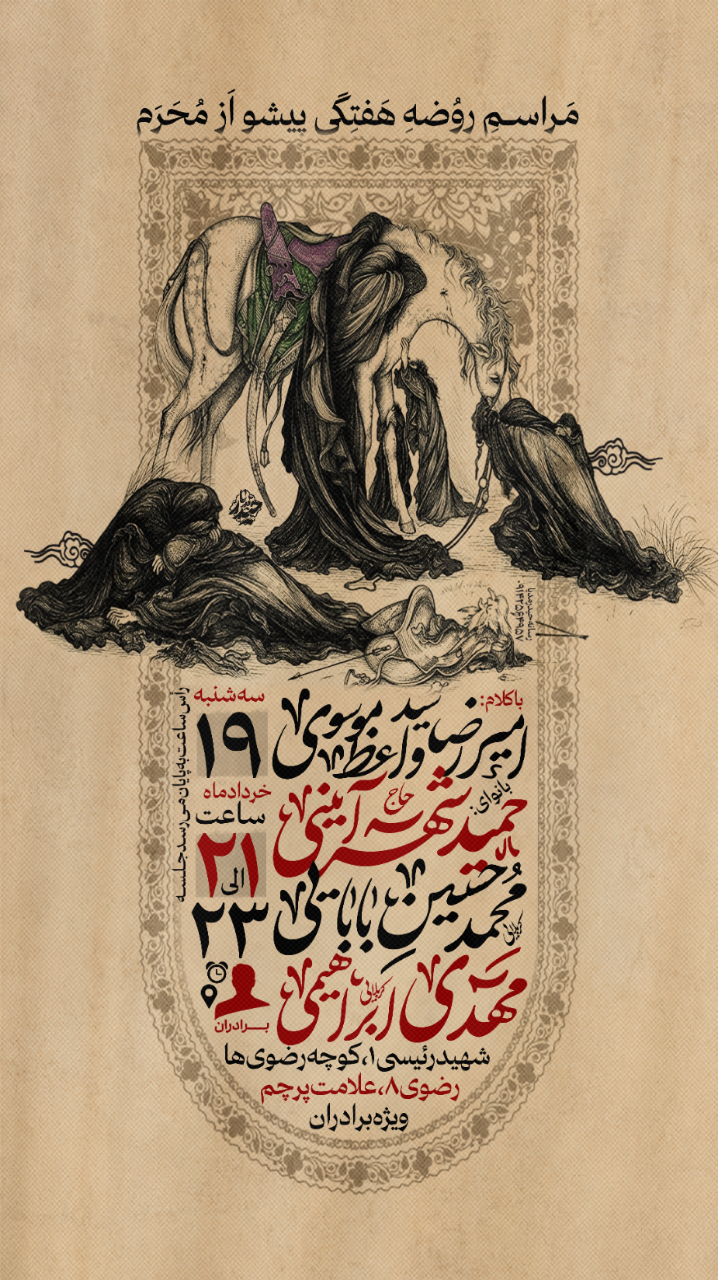 مَراسِمِ روُضهِ هَفتِگی پیشو اَز مُحَرَم
باکلام:
سید امیررضا واعظ موسوی
بانوای:
حاج حمید شه آیینی
کربلایی محمدحسین بابایی
کربلایی مهدی ابراهیمی
سه شنبه
۱۹
خردادماه
ساعت
۲۱
الی
۲۳
برادران
راس ساعت به پایان می‌رسد جلسه
شهیدرئیسی۱،کوچه رضوی ها
رضوی۸،علامت پرچم
ویژه برادران